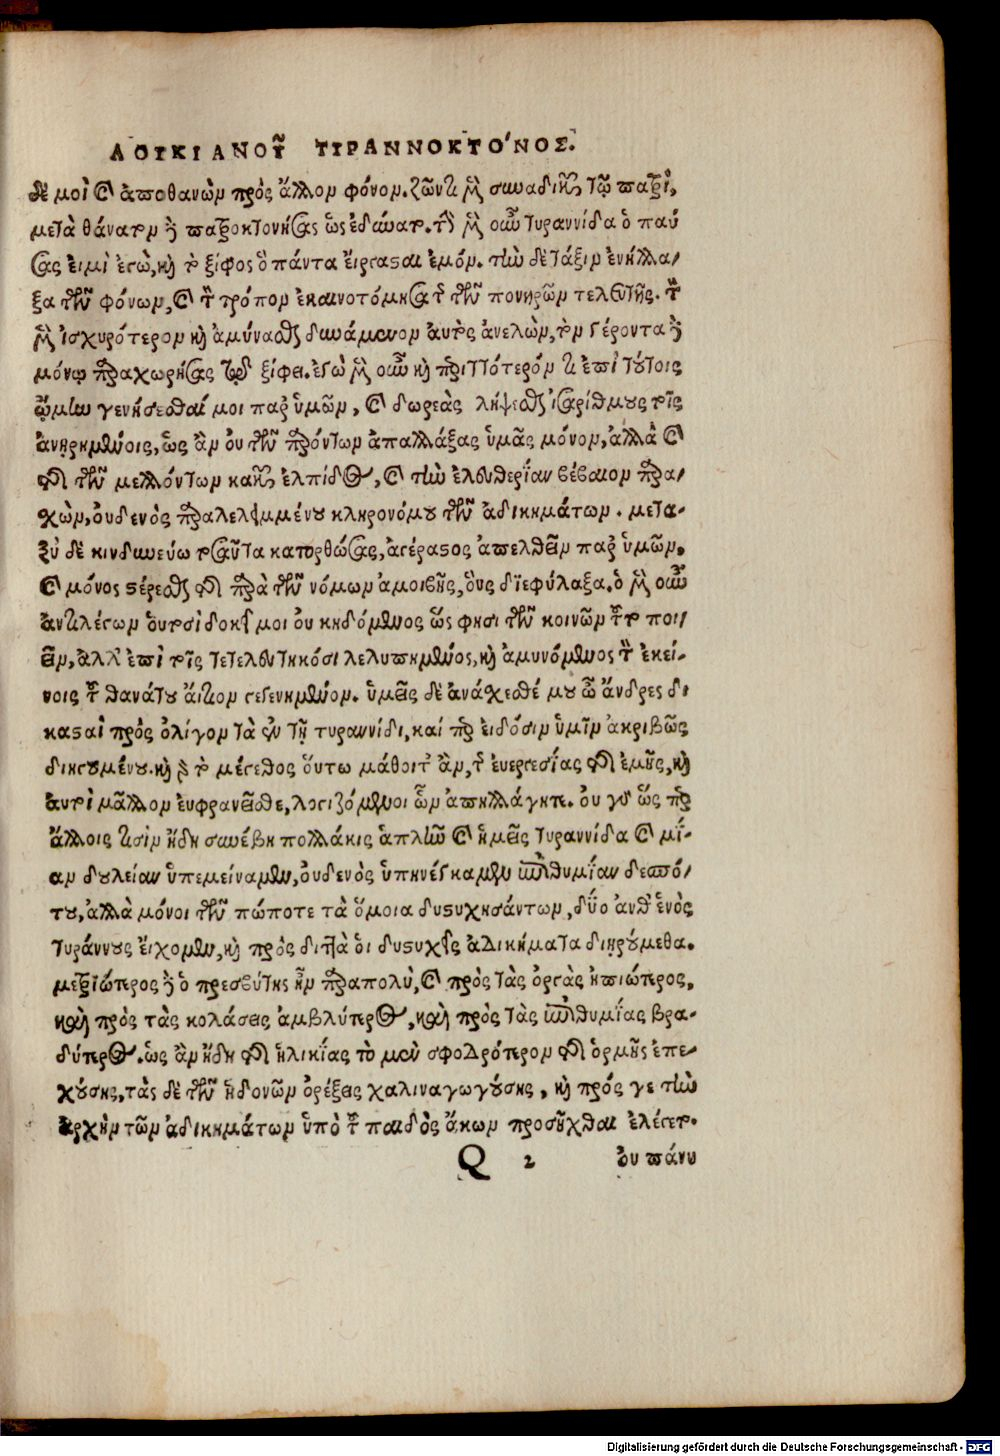 ΛΟΥΚΙΑΝΟΥ͂ ΤΙΡΑΝΝΟΚΤΌΝΟΣ.
δὲ μοὶ καὶ ἀποθανὼν πρὸς ἄλλον φόνον. ζῶντι μὲν συναδικεῖ τῷ πατρὶ,
μετὰ θάνατον δὲ πατροκτονήσας ὡς ἐδύνατο. τὸ μὲν οὖν τυραννίδα ὁ παύ
σας εἰμὶ ἐγὼ, καὶ τὸ ξίφος ὃ πάντα εἴργασαι ἐμόν. τὴν δὲ τάξιν ἐνήλλα/
ξα τῶν φόνων, καὶ τὸν τρόπον ἐκαινοτόμησα τῆς τῶν πονηρῶν τελευτῆς. τὸν
μὲν ἰσχυρότερον καὶ ἀμύνασθαι δυνάμενον αὐτὸς ἀνελὼν, τὸν γέροντα δὲ
μόνῳ παραχωρήσας τῷ ξίφει. ἐγὼ μὲν οὖν καὶ περιττότερόν τι ἐπὶ τούτοις
ᾤμην γενήσεσθαί μοι παρ' ὑμῶν, καὶ δωρεὰς λήψεσθαι ἰσαρίθμους τοῖς
ἀνῃρημένοις, ὡς ἂν οὐ τῶν παρόντων ἀπαλλάξας ὑμᾶς μόνον, ἀλλὰ καὶ
τῆς τῶν μελλόντων κακῶν ἐλπίδος, καὶ τὴν ἐλευθερίαν βέβαιον παρα/
χὼν, οὐδενὸς παραλελειμμένου κληρονόμου τῶν ἀδικημάτων. μετα-
ξὺ δὲ κινδυνεύω τοσαῦτα κατορθώσας, ἀγέραστος ἀπελθεῖν παρ' ὑμῶν.
καὶ μόνος στέρεσθαι τῆς παρὰ τῶν νόμων ἀμοιβῆς, οὓς διεφύλαξα. ὁ μὲν οὖν
ἀντιλέγων οὑτοσὶ δοκεῖ μοι οὐ κηδόμενος ὥς φησι τῶν κοινῶν τοῦτο ποι/
εῖν, ἀλλ' ἐπὶ τοῖς τετελευτηκόσι λελυπημένος, καὶ ἀμυνόμενος τὸν ἐκεί-
νοις τοῦ θανάτου αἴτιον γεγενημένον. ὑμεῖς δὲ ἀνάσχεσθέ μου ὦ ἄνδρες δι
κασταὶ πρὸς ὀλίγον τὰ ἐν τῇ τυραννίδι, καί περ εἰδόσιν ὑμῖν ἀκριβῶς
διηγουμένου. καὶ γὰρ τὸ μέγεθος οὕτω μάθοιτ' ἂν, τῆς εὐεργεσίας τῆς ἐμῆς, καὶ
αὐτοὶ μᾶλλον εὐφρανεῖσθε, λογιζόμενοι ὧν ἀπηλλάγητε. οὐ γὰρ ὥς περ
ἄλλοις τισὶν ἤδη συνέβη πολλάκις ἁπλῶν καὶ ἡμεῖς τυραννίδα καὶ μί-
αν δουλείαν ὑπεμείναμεν, οὐδενὸς ὑπηνέγκαμεν ἐπιθυμίαν δεσπό/
του, ἀλλὰ μόνοι τῶν πώποτε τὰ ὅμοια δυστυχησάντων, δύο ἀνθ' ἑνὸς
τυράννους εἴχομεν, καὶ πρὸς διττὰ οἱ δυστυχεῖς ἀδικήματα διῃρούμεθα.
μετριώτερος δὲ ὁ πρεσβύτης ἦν παραπολὺ, καὶ πρὸς τὰς ὀργὰς ἠπιώτερος,
καὶ πρὸς τὰς κολάσεις ἀμβλύτερος, καὶ πρὸς τὰς ἐπιθυμίας βρα-
δύτερος. ὡς ἂν ἤδη τῆς ἡλικίας τὸ μὲν σφοδρότερον τῆς ὁρμῆς ἐπε-
χούσης, τὰς δὲ τῶν ἡδονῶν ὀρέξεις χαλιναγωγούσης, καὶ πρός γε τὴν
ἀρχὴν τῶν ἀδικημάτων ὑπὸ τοῦ παιδὸς ἄκων προσῆχθαι ἐλέγετο.
Q 2 οὐ πάνυ
Digitalisierung gefördert durch die Deutsche Forschungsgemeinschaft - DFG